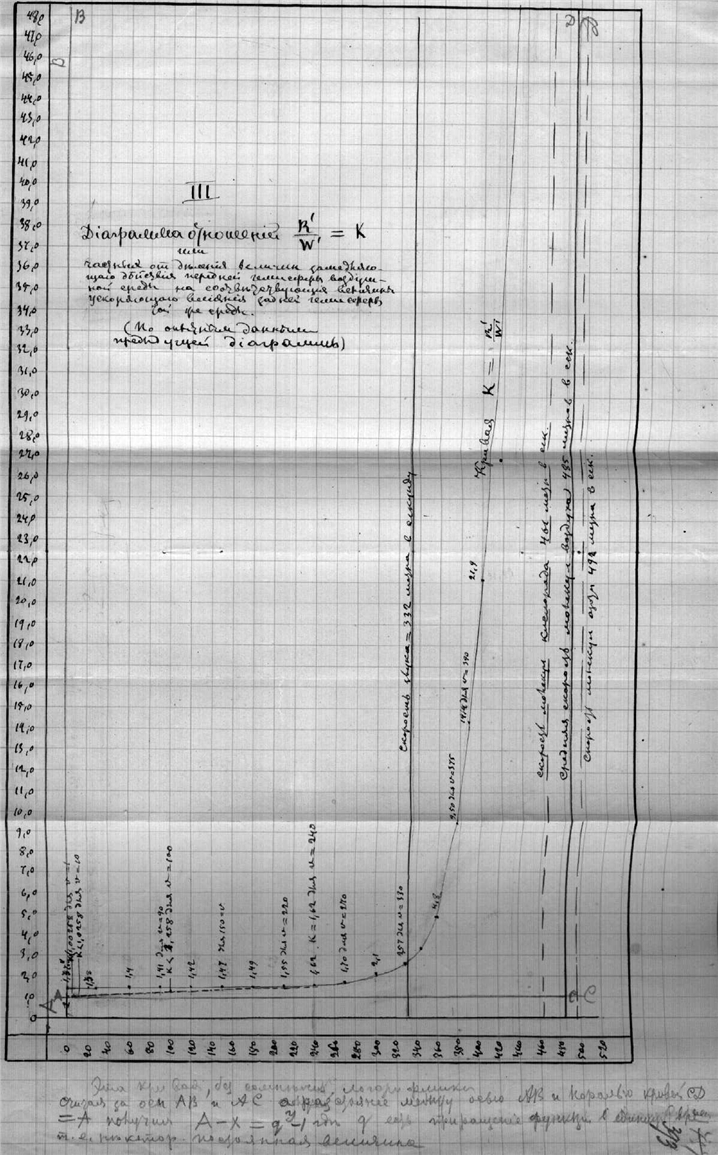 B
D
B
III
Діаграмма отношеній R'/W' = K
или
частныя отъ дѣленія величин замедляю-
щаго дѣйствія передней гемисферы воздуш-
ной среды на соотвѣтствующія величины
ускоряющаго вліянія задней гемисферы
той же среды.
(По опытным даннымъ
предыдущей діаграммы)
Кривая K = R'/W'
скорость звука = 332 метра в секунду
скорость молекул кислорода 461 метр в сек.
Средняя скорость молекул воздуха 485 метров в сек.
скорость молекул азота 492 метра в сек.
21,9
для v = 390
9,50 для v = 375
4,8
для v = 330
2,1
1,70 для v = 270
1,62 K = 1,62 для v = 240
1,55 для v = 220
1,49
1,47 для 150 = v
1,42
1,41 для v = 90
K < 1,258 для v = 100
1,4
K < 1,0258 для v = 10
A
C
48,0
47,0
46,0
45,0
44,0
43,0
42,0
41,0
40,0
39,0
38,0
37,0
36,0
35,0
34,0
33,0
32,0
31,0
30,0
29,0
28,0
27,0
26,0
25,0
24,0
23,0
22,0
21,0
20,0
19,0
18,0
17,0
16,0
15,0
14,0
13,0
12,0
11,0
10,0
9,0
8,0
7,0
6,0
5,0
4,0
3,0
2,0
1,0
0
0 20 40 60 80 100 120 140 160 180 200 220 240 260 280 300 320 340 360 380 400 420 440 460 480 500 520
Эта кривая, без сомнѣния, логарифмика
считая за оси AB и AC а разстояние между осью AB и кривой CD
= A получим A - x = q^y - 1 гдѣ q есть приращение функции в
т. е. некотор. постоянная величина